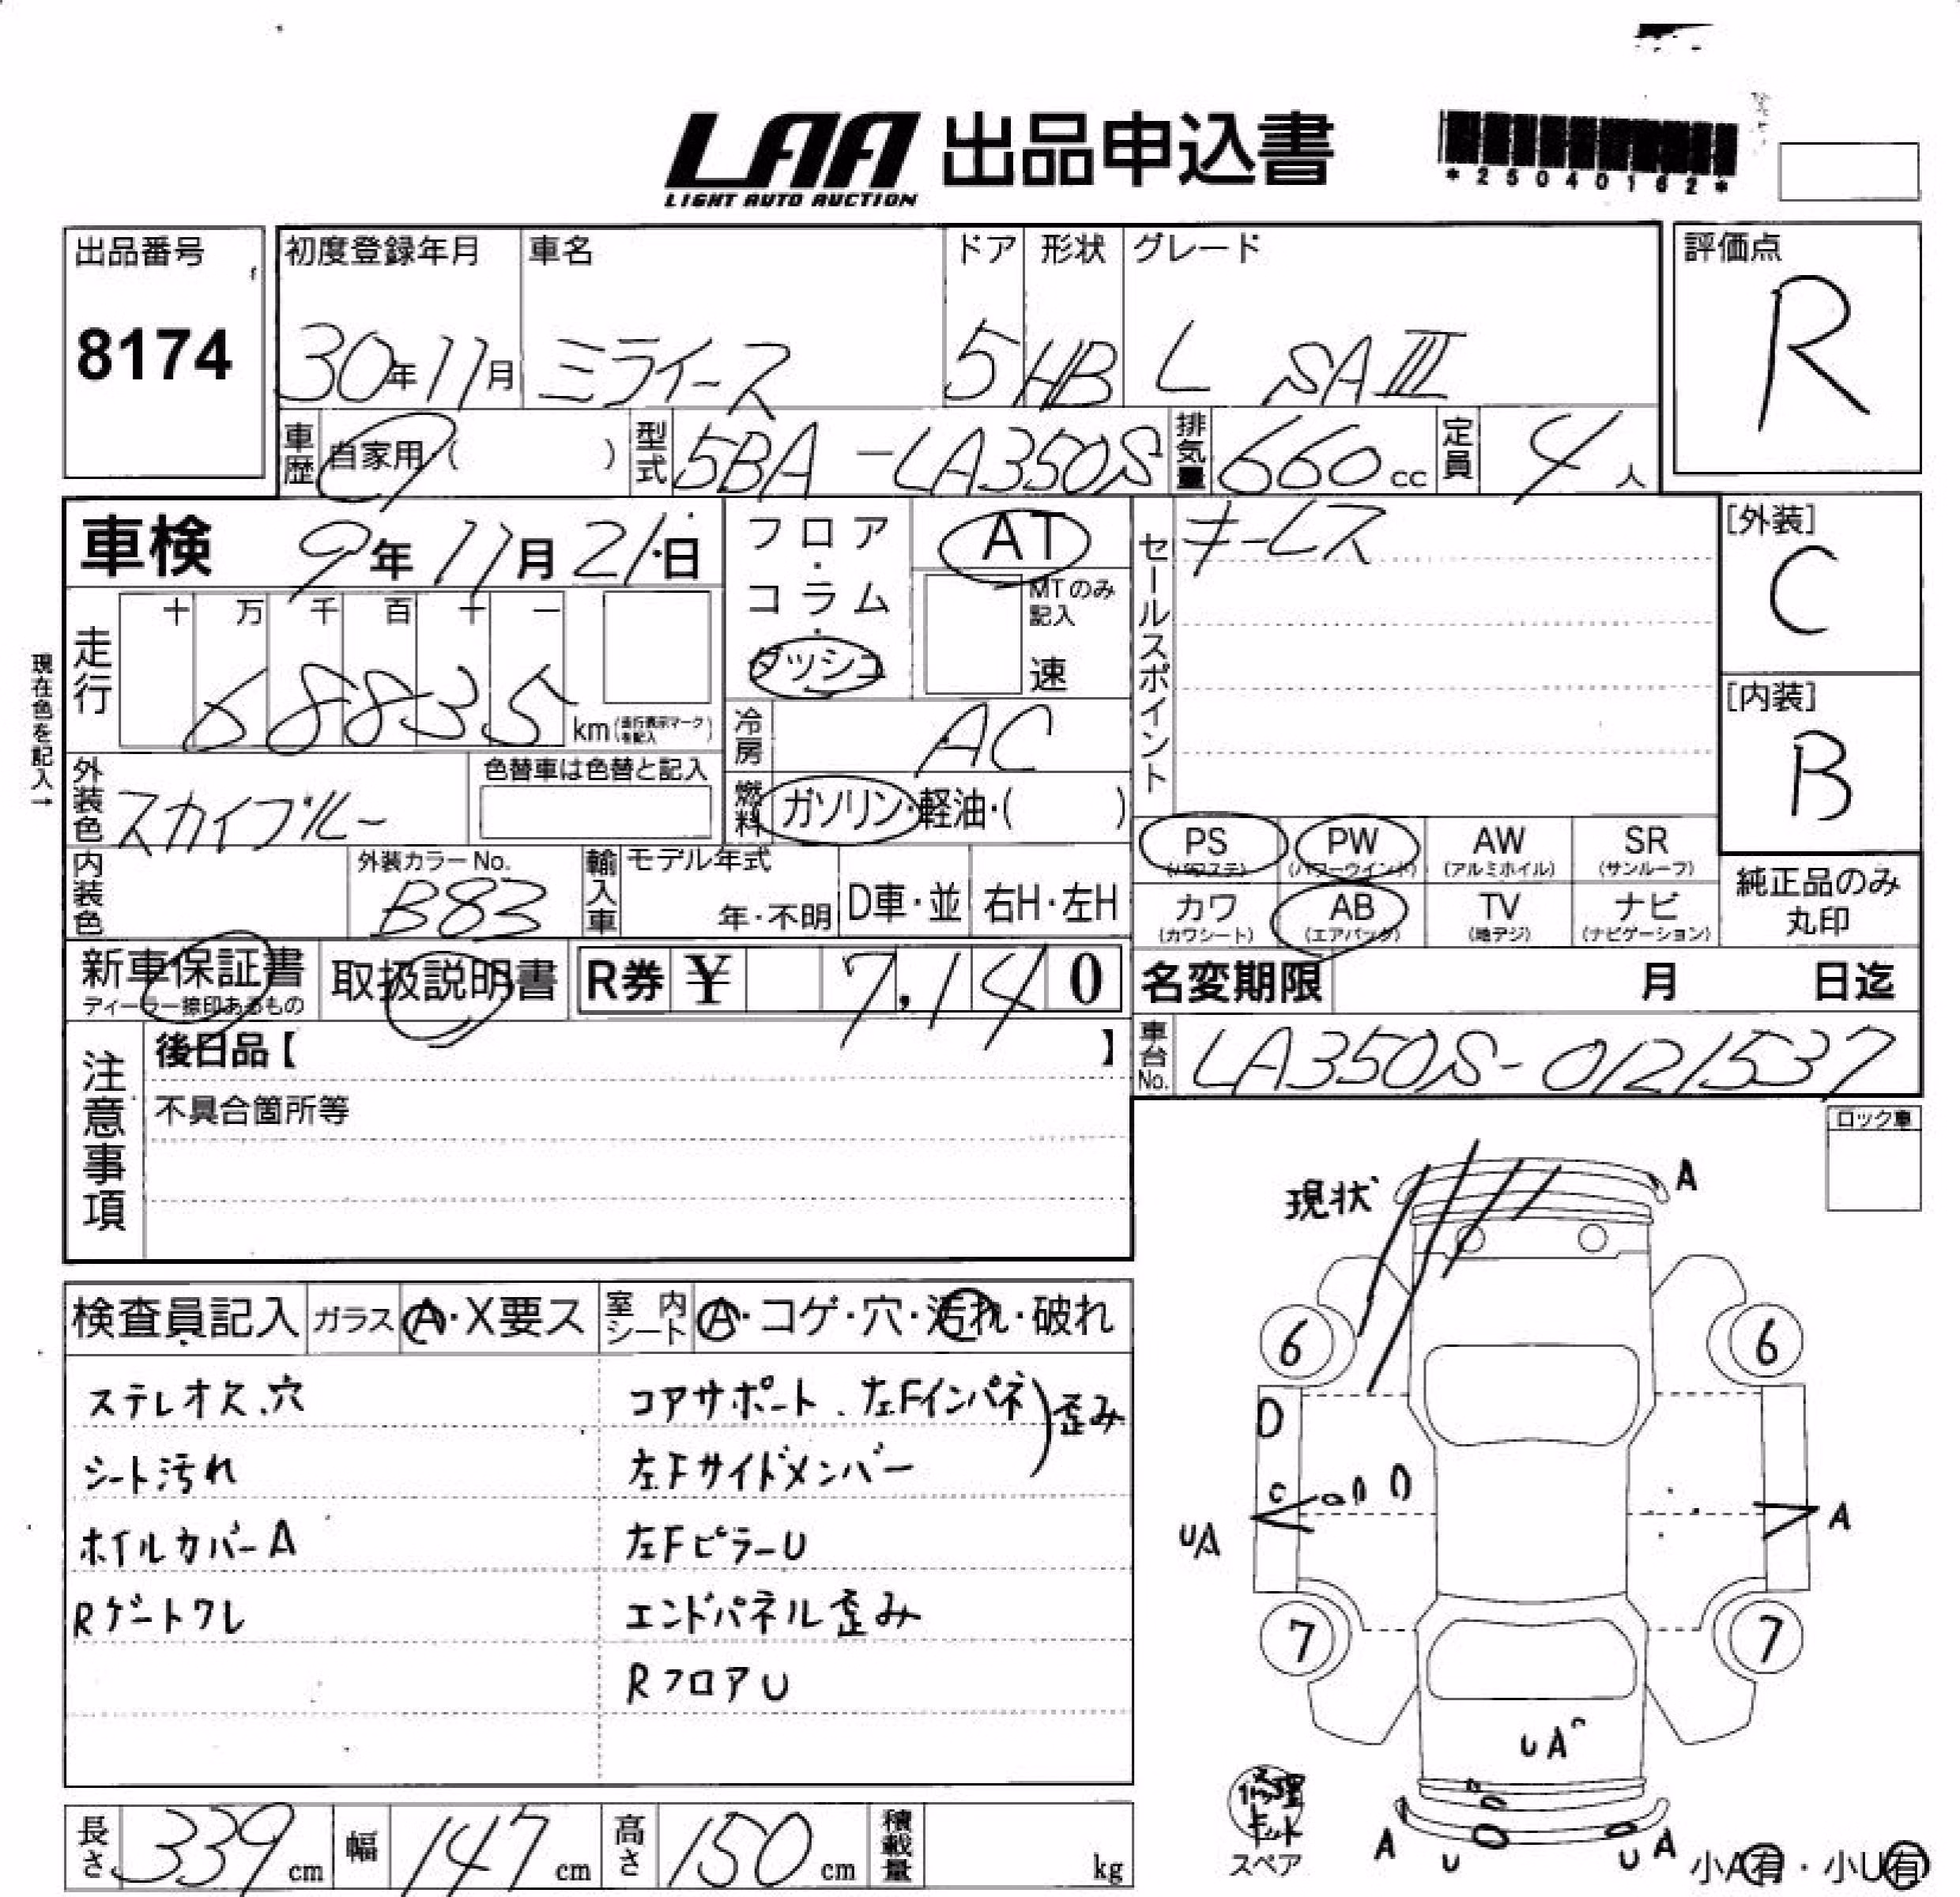 LAA 出品申込書
LIGHT AUTO AUCTION
*25040162*
出品番号
8174
初度登録年月
30年11月
車名
ミライース
ドア
5
形状
HB
グレード
L SAⅢ
評価点
R
車歴 自家用 ( )
型式 5BA-LA350S
排気量 660cc
定員 4人
車検 9年11月21日
フロア・コラム・ダッシュ
AT
MTのみ記入
速
セールスポイント
キーレス
[外装]
C
[内装]
B
現在色を記入→
走行
十 万 千 百 十 一
68835 km (走行表示マークを記入)
冷房 AC
外装色 スカイブルー
色替車は色替と記入
燃料 ガソリン・軽油・( )
PS (パワステ)
PW (パワーウインド)
AW (アルミホイル)
SR (サンルーフ)
カワ (カワシート)
AB (エアバック)
TV (地デジ)
ナビ (ナビゲーション)
純正品のみ丸印
内装色
外装カラーNo.
B83
輸入車
モデル年式
年・不明
D車・並
右H・左H
新車保証書
ディーラー捺印あるもの
取扱説明書
R券 ¥ 7,140
名変期限 月 日迄
車台No. LA350S-0121537
注意事項
後日品【 】
不具合箇所等
ロック車
現状
A
6
6
D
UA
A
7
7
UA
A
U
U
A
修理キット
スペア
小A有・小U有
検査員記入
ガラス A・X要ス
室内シート A・コゲ・穴・汚れ・破れ
ステレオ欠、穴
シート汚れ
ホイルカバーA
Rゲートワレ
コアサポート、左Fインパネ
左Fサイドメンバー
歪み
左FピラーU
エンドパネル歪み
RフロアU
長さ 339cm
幅 147cm
高さ 150cm
積載量 kg